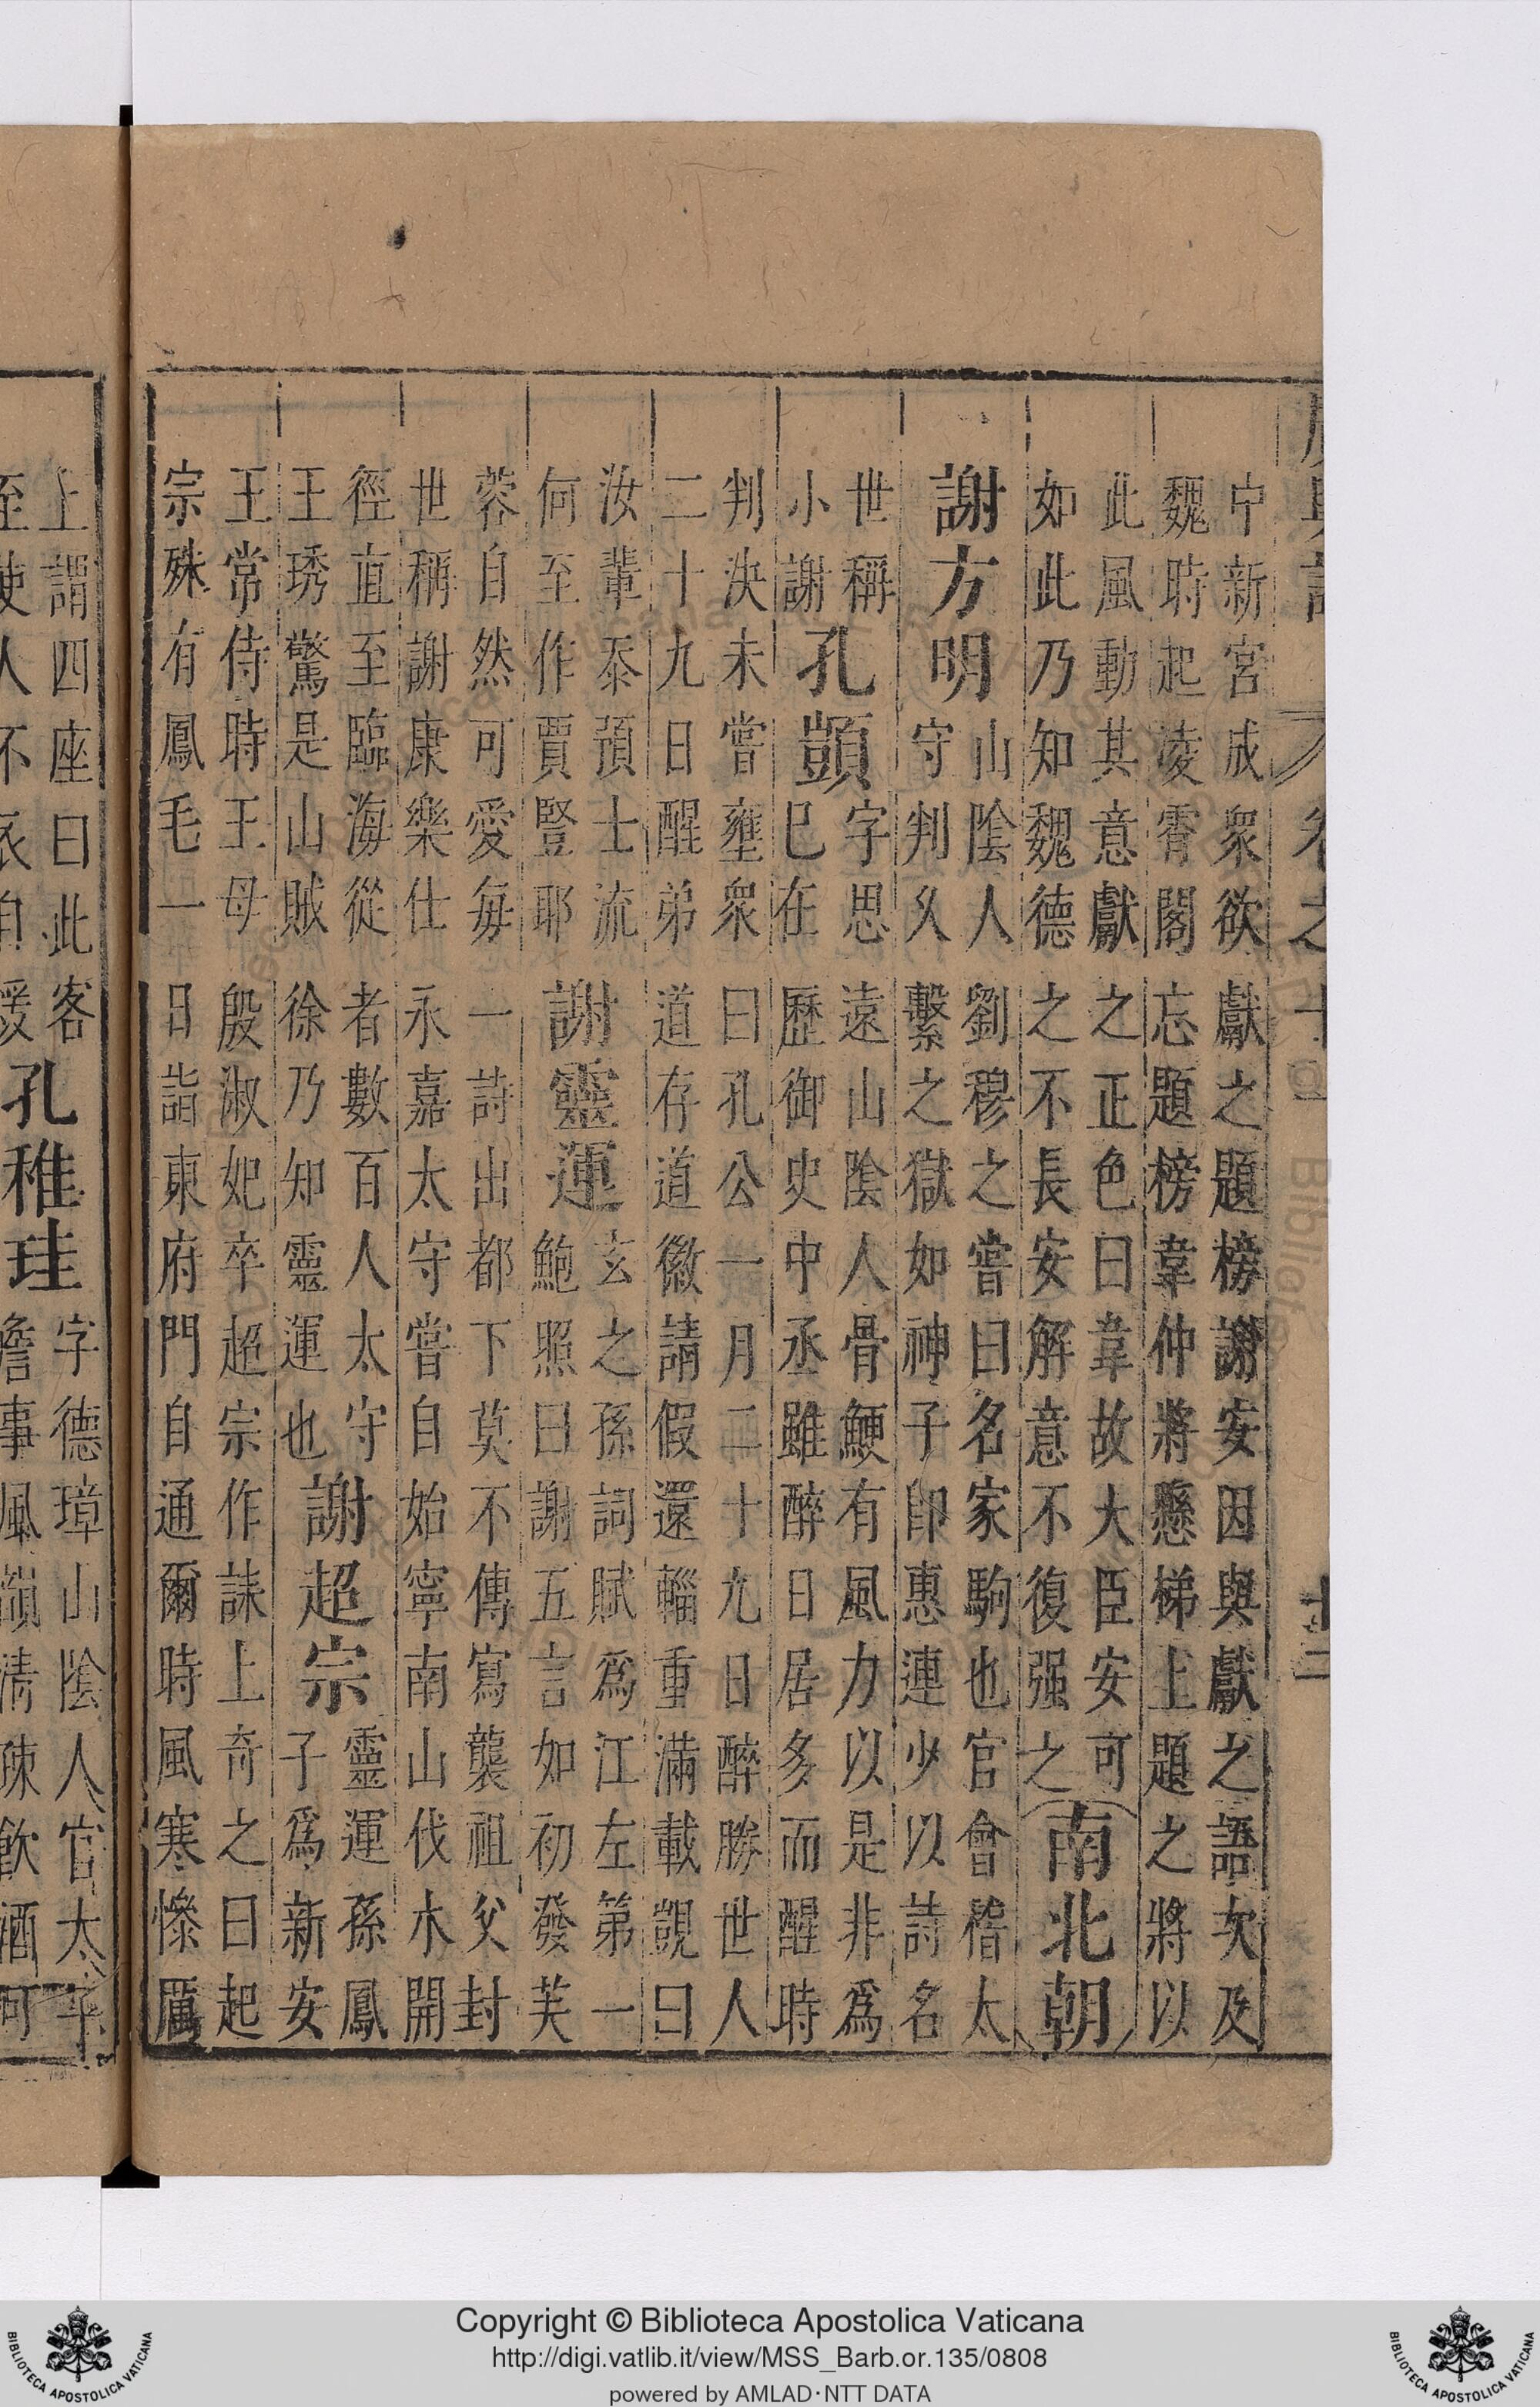 卷之十
十二
中新宮成衆欲獻之題榜謝安因與獻之語次及
魏時起凌霄閣忘題榜韋仲將懸梯上題之將以
此風動其意獻之正色曰韋故大臣安可
如此乃知魏德之不長安解意不復强之
南北朝
謝方明
山陰人劉穆之嘗曰名家駒也官會稽太
守判久繫之獄如神子卽惠連少以詩名
世稱
小謝
孔顗
字思遠山陰人骨鯁有風力以是非爲
巳在歷御史中丞雖醉日居多而醒時
判決未嘗壅衆曰孔公一月二十九日醉勝世人
二十九日醒弟道存道徽請假還輜重滿載覬曰
汝輩忝預士流
何至作賈豎耶
謝靈運
玄之孫詞賦爲江左第一
鮑照曰謝五言如初發芙
蓉自然可愛每一詩出都下莫不傳寫襲祖父封
世稱謝康樂仕永嘉太守嘗自始寧南山伐木開
徑直至臨海從者數百人太守
王琇驚是山賊徐乃知靈運也
謝超宗
靈運孫鳳
子爲新安
王常侍時王母殷淑妃卒超宗作誄上奇之曰起
宗殊有鳳毛一日詣東府門自通爾時風寒慘厲
上謂四座曰此客
至使人不衣自煖
孔稚珪
字德璋山陰人官太子
詹事風韻清疎飲酒可
Copyright © Biblioteca Apostolica Vaticana
http://digi.vatlib.it/view/MSS_Barb.or.135/0808
powered by AMLAD·NTT DATA
BIBLIOTECA APOSTOLICA VATICANA
BIBLIOTECA APOSTOLICA VATICANA